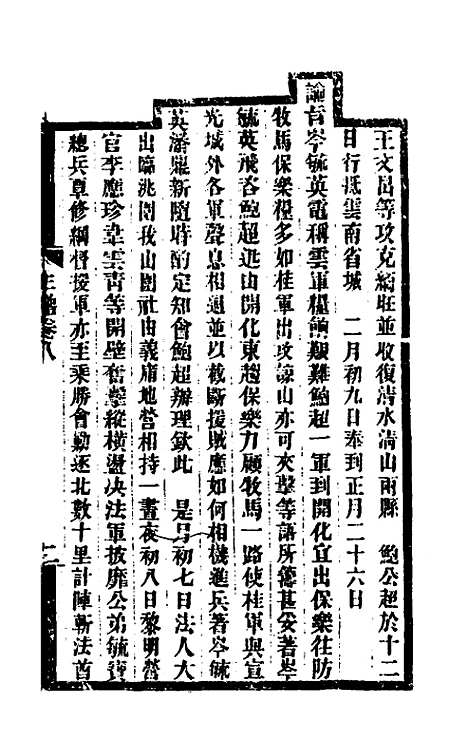 王文崮等攻克緬旺並收復清水清山兩縣　鮑公超於十二
日行抵雲南省城　二月初九日奉到正月二十六日
諭旨岑毓英電稱雲軍糧餉艱難鮑超一軍到開化宜出保樂往防
牧馬保樂糧多如桂軍出攻諒山亦可夾擊等語所籌甚妥著岑
毓英飛咨鮑超進山開化東趨保樂力顧牧馬一路使桂軍與宣
光城外各軍聲息相通並以截斷援賊應如何相機進兵著岑毓
英潘鼎新隨時酌定知會鮑超辦理欽此　是月初七日法人大
出臨洮圍我山圍社由義痛地營相持一晝夜初八日黎明營
官李應珍韋雲青等開壁奮擊縱橫盪決法軍披靡公弟毓寶
總兵覃修綱督援軍亦至乘勝會勦逐北數十里計陣斬法酋
卷八